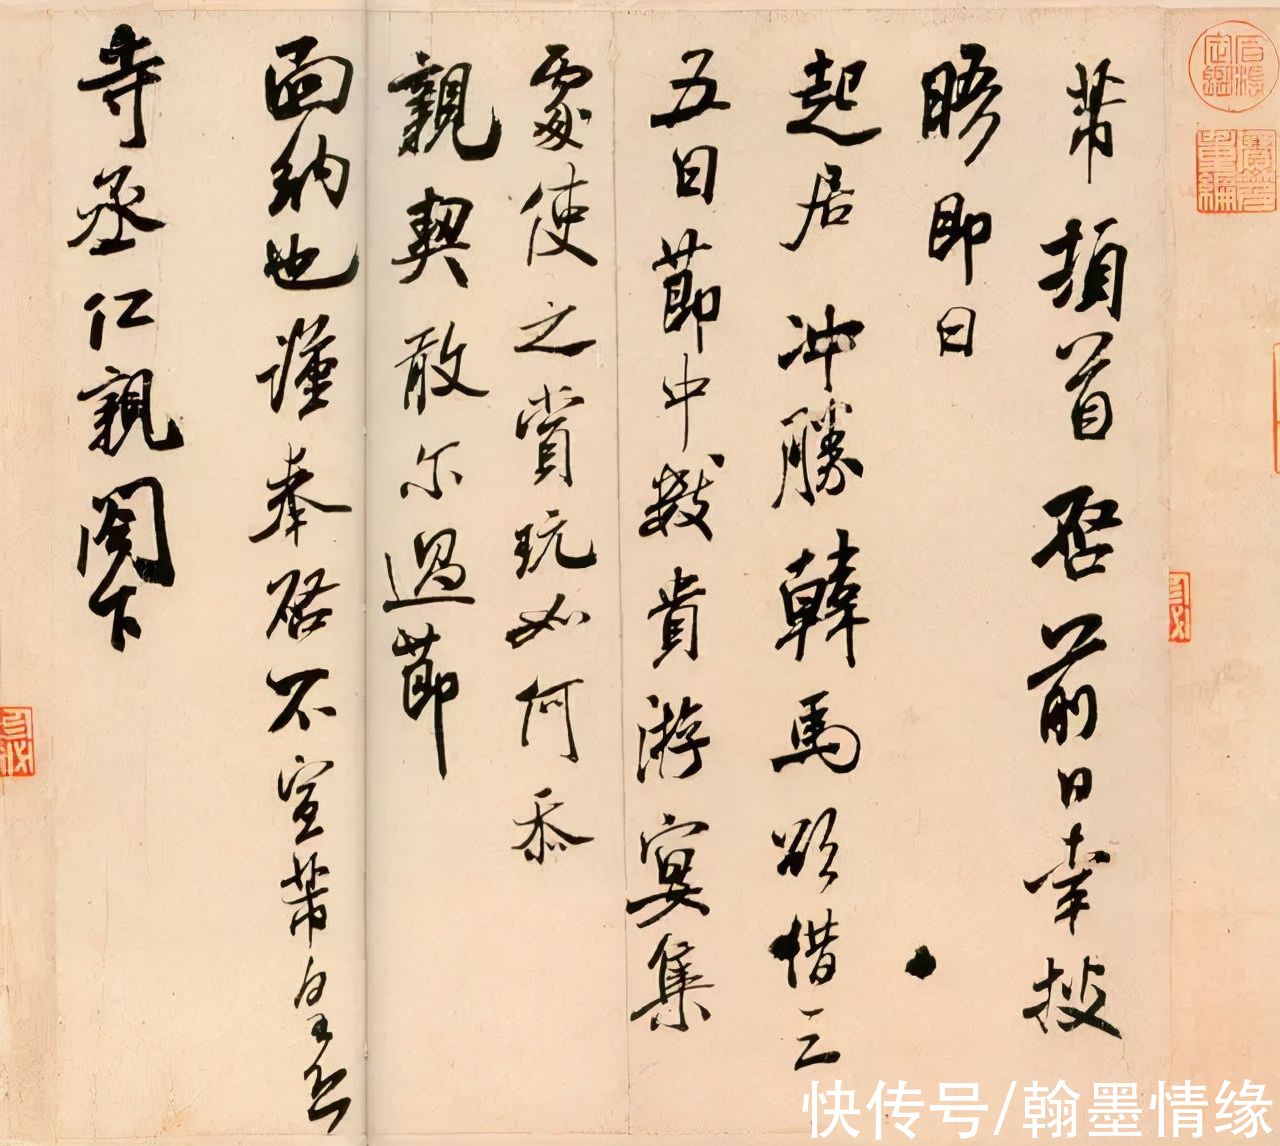 芾頓首啓前日幸披
晤即日
起居冲勝韓馬欲借三
五日節中數貴游宴集
處使之賞玩如何忝
親契敢尔過節
面納也謹奉啓不宣芾皇恐
寺丞仁親閤下
快传号/翰墨情缘